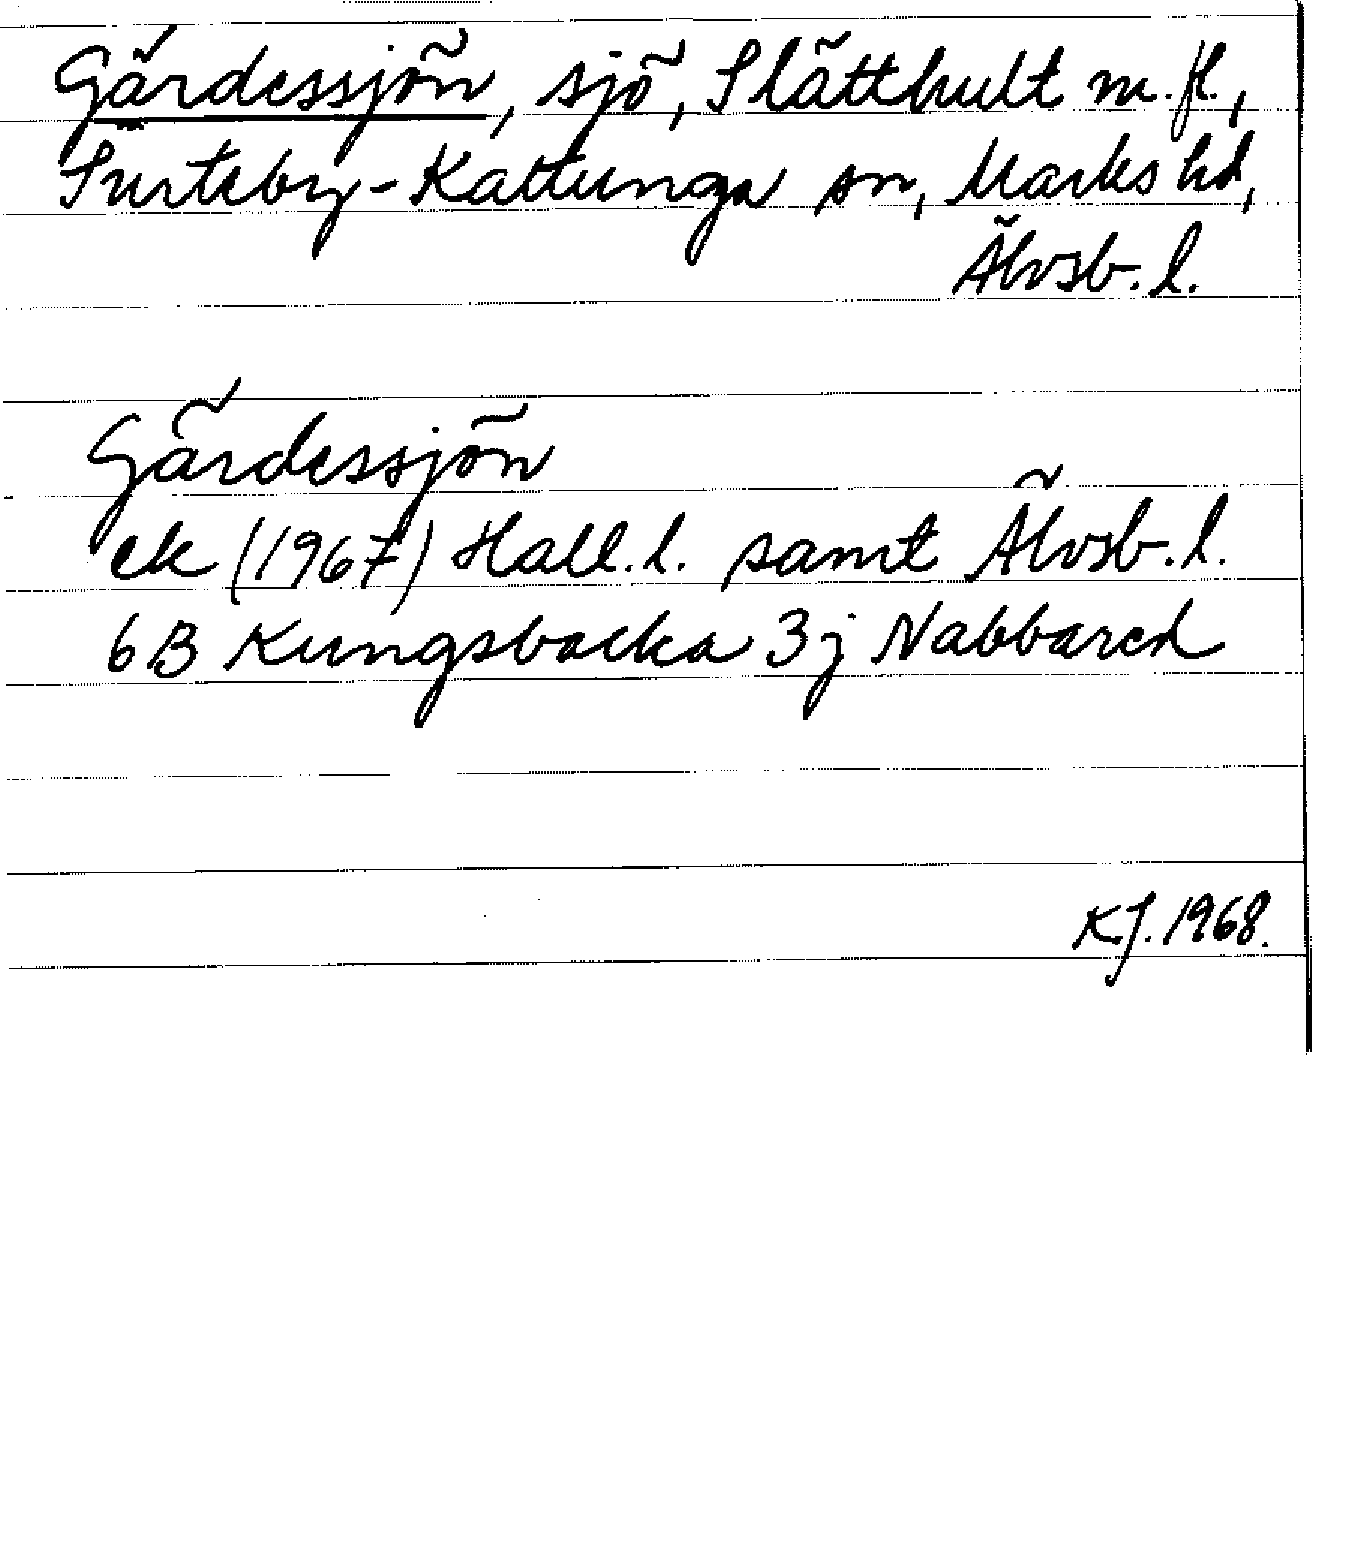 Gärdessjön, sjö, Slätthult m.fl.,
Surteby-Kattunga sn, Marks hd,
Älvsb. l.
Gärdessjön
ek (1967) Hall. l. samt Älvsb. l.
6B Kungsbacka 3j Nabbared
K.J. 1968.